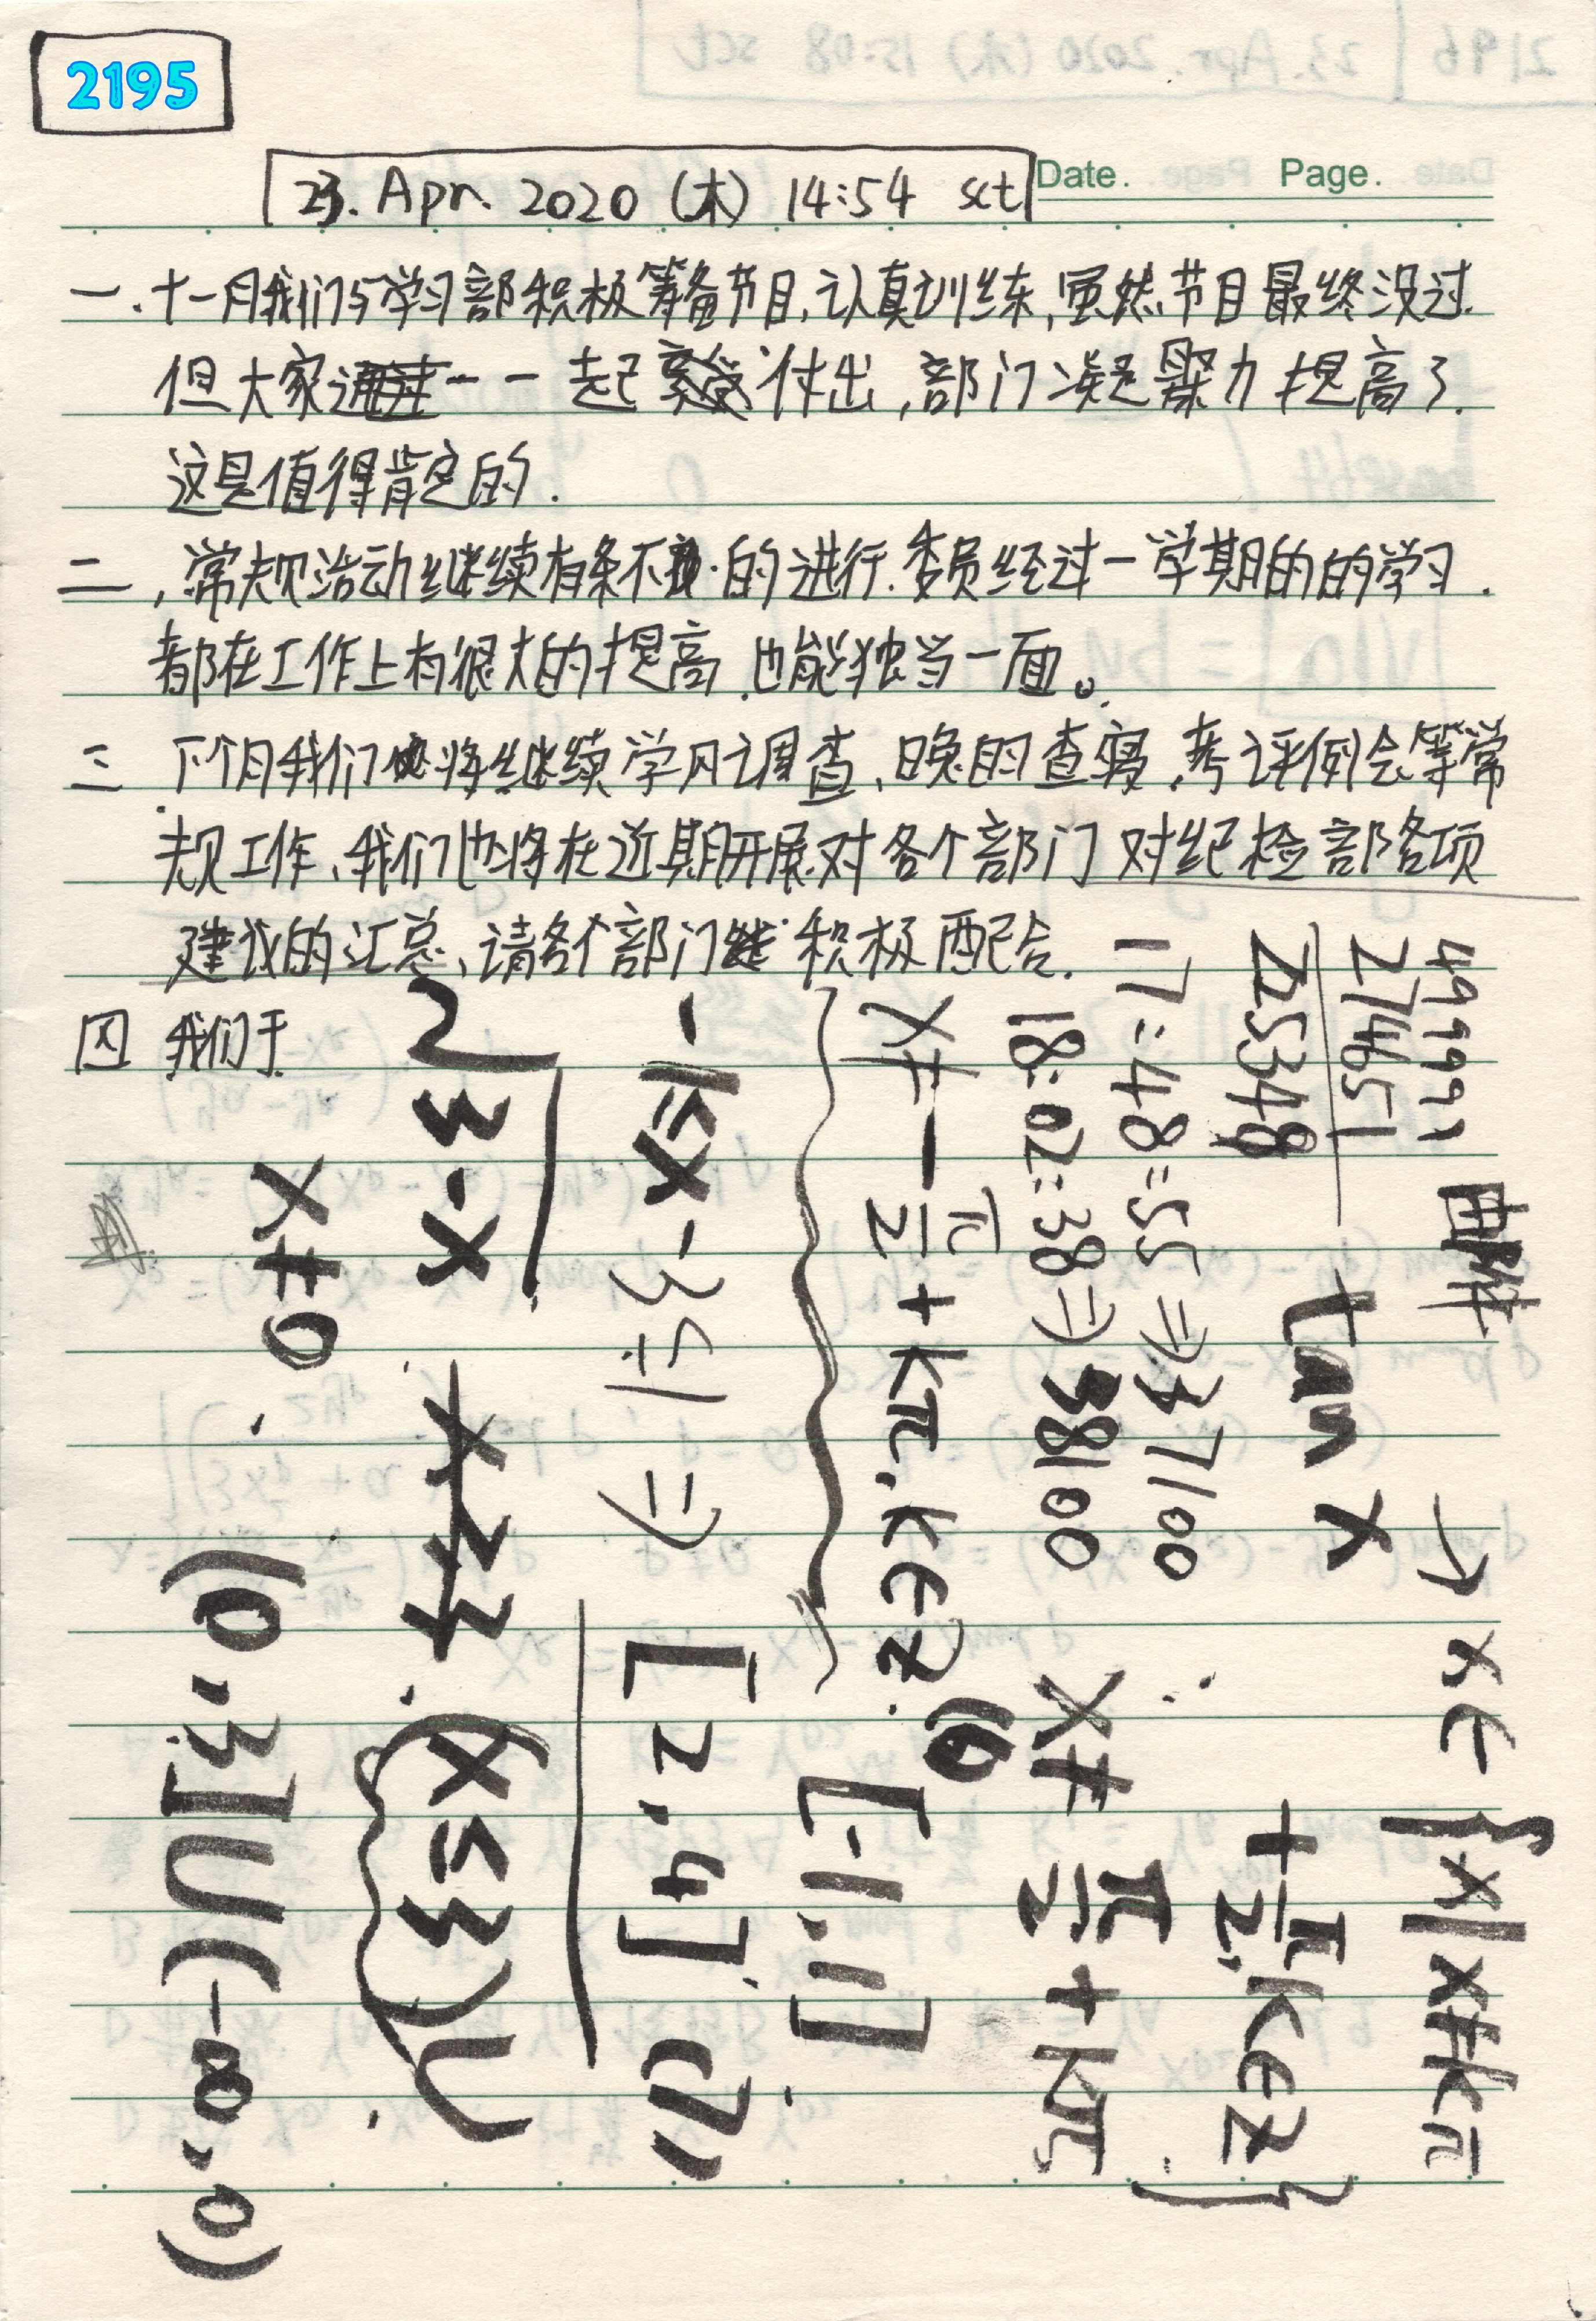 2195
23. Apr. 2020 (木) 14:54 sct
Date. Page.
一.十一月我们与学习部积极筹备节目,认真训练,虽然节目最终没过.
但大家一起付出,部门凝聚力提高了.
这是值得肯定的.
二,常规活动继续有条不的进行.委员经过一学期的的学习.
都在工作上有很大的提高.也能独当一面。
三.下个月我们将继续学风调查、晚的查寝,考评例会等常
规工作、我们也将在近期开展对各个部门对纪检部各项
建议的汇总、请各个部门积极配合.
四 我们于
499991
274651
225348
17:48:55 ⇒ 37100
18:02:38 ⇒ 38100
tan x → x ∈ {x|x≠kπ
+π/2, k∈Z}
x≠-π/2+kπ, k∈Z.
(6) x≠π/2+kπ
[-1,1]
-1≤x-3≤1 ⇒ [2,4] (7)
√3-x
(x≤3)∪
x≠0. (0,3]∪(-∞,0)